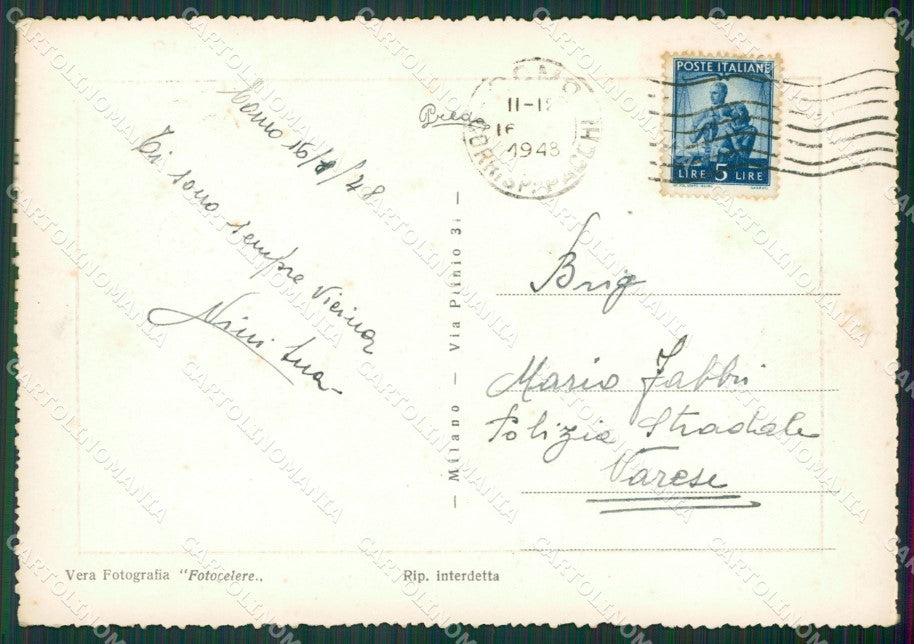 Como 16/8/48
Ti sono sempre vicina
Nini tua
COMO
11-12
16
1948
CORRISP. PACCHI
POSTE ITALIANE
LIRE 5 LIRE
Brig
Mario Fabbri
Polizia Stradale
Varese
— Milano — Via Plinio 31 —
Vera Fotografia "Fotocelere„
Rip. interdetta
CARTOLINOMANIA